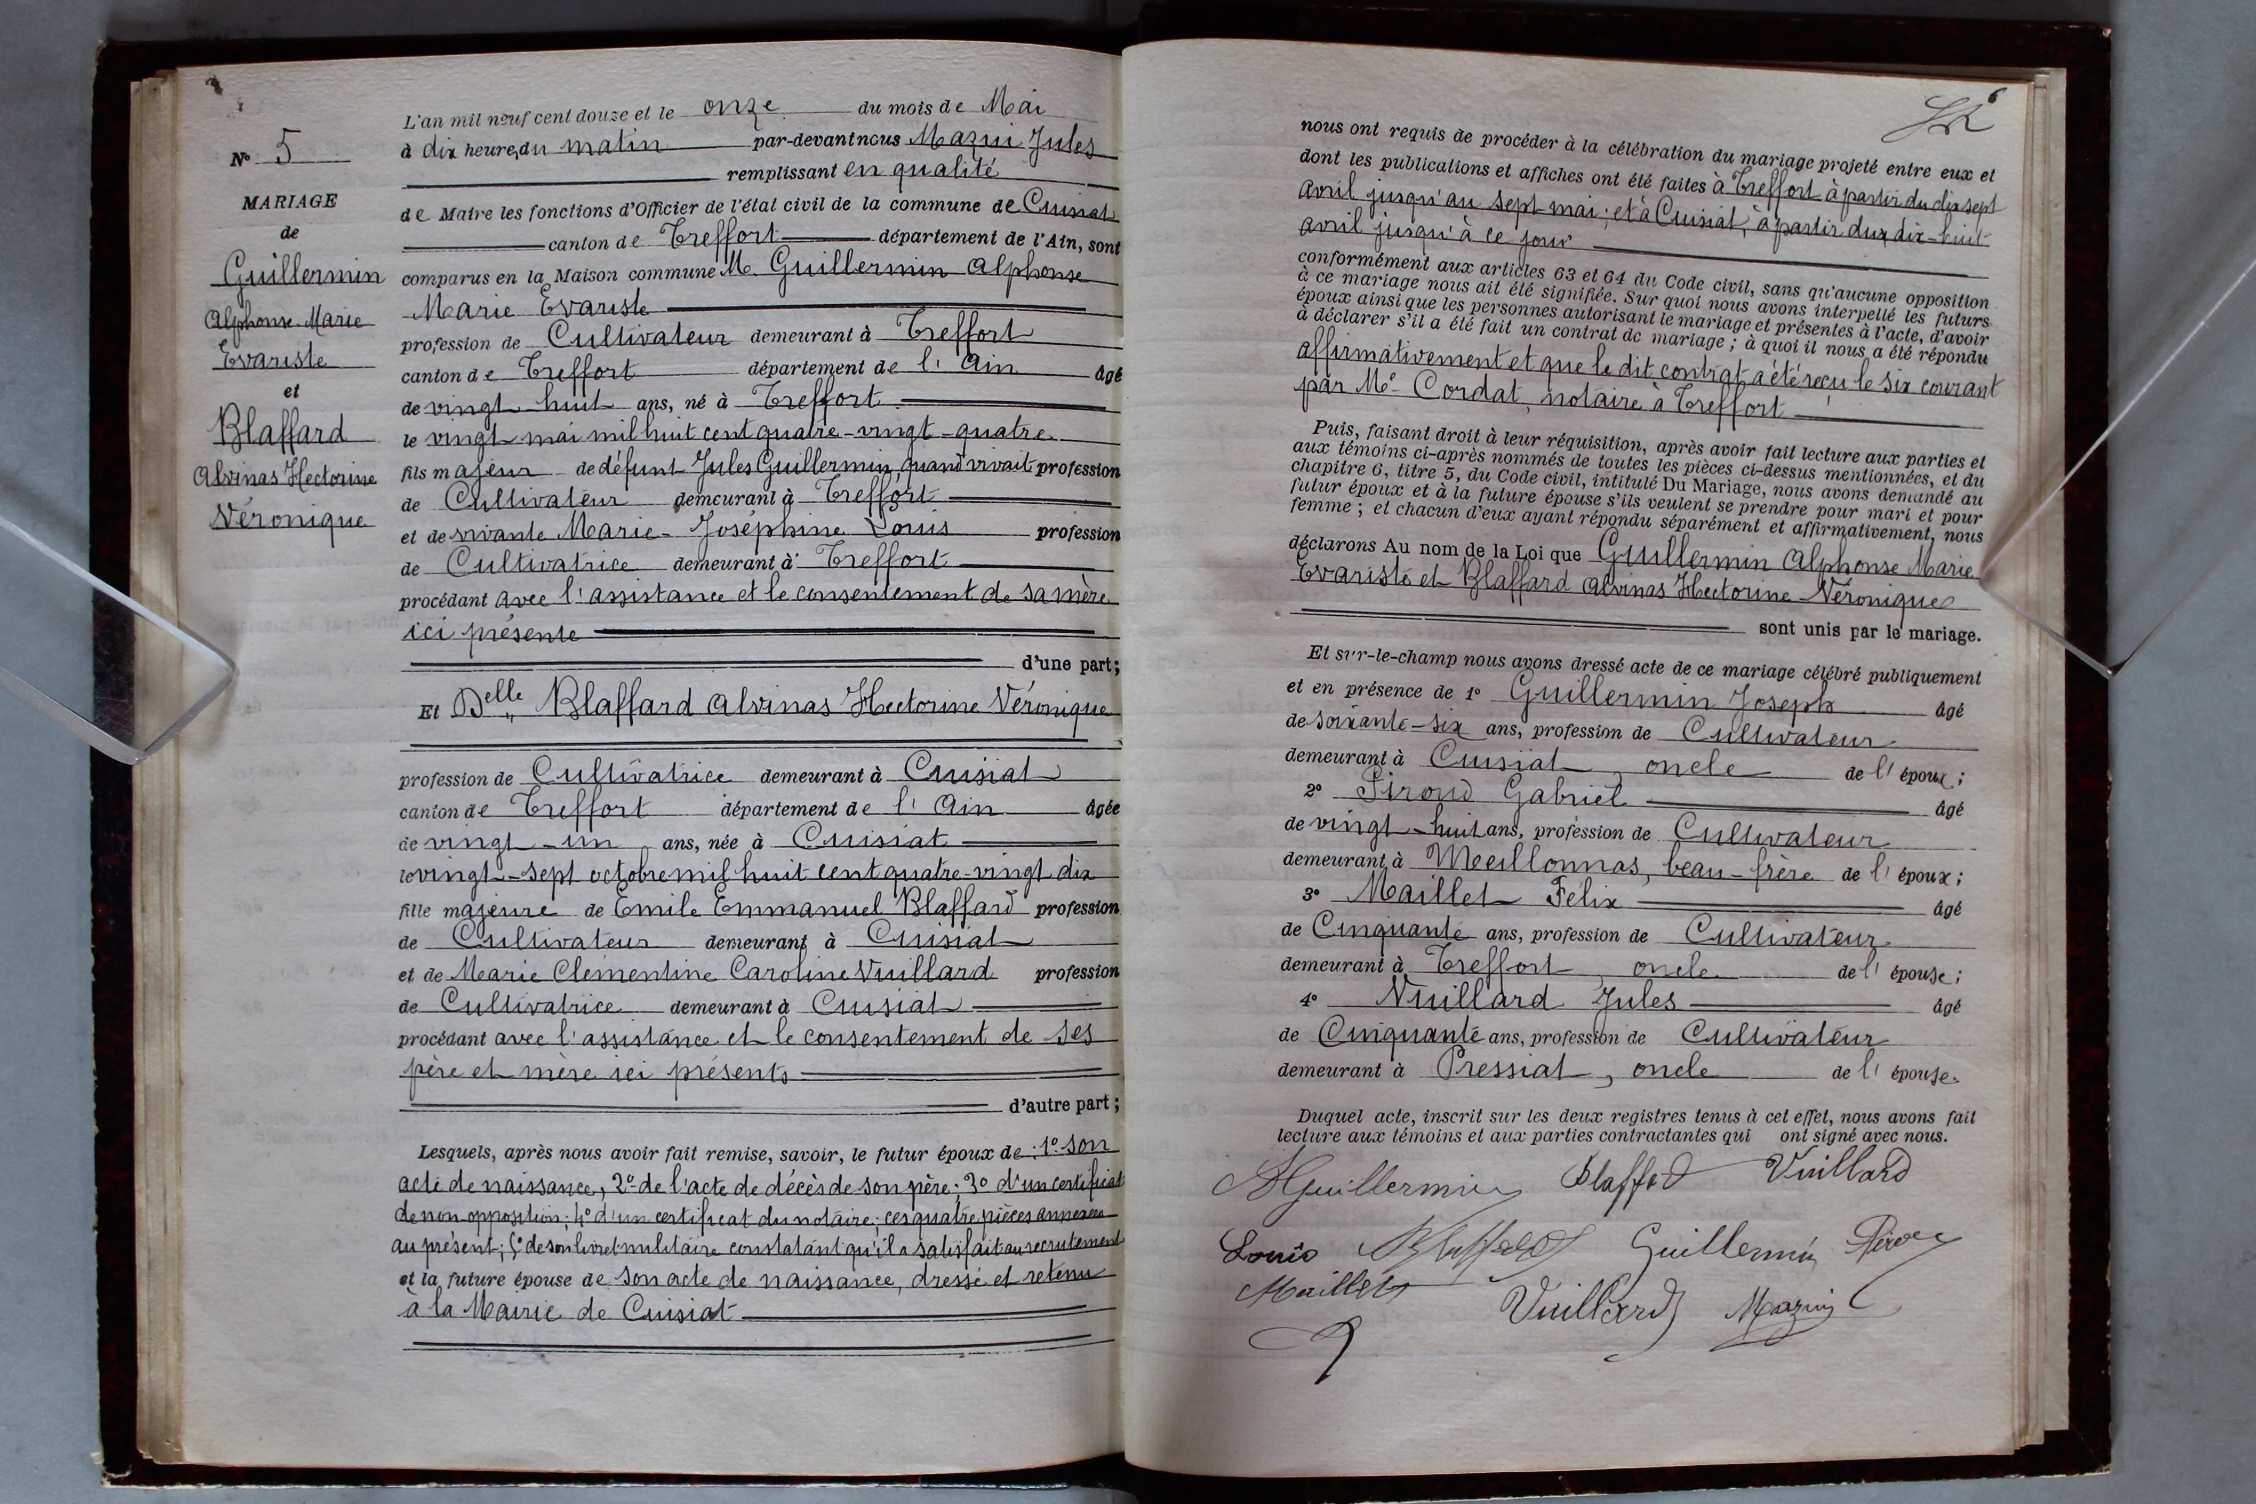 N° 5
MARIAGE
de
Guillermin
Alphonse Marie
Evariste
et
Blaffard
Alvinas Hectorine
Véronique
L'an mil neuf cent douze et le onze du mois de Mai
à dix heure, du matin par-devant nous Mazui Jules
remplissant en qualité
de Maire les fonctions d'Officier de l'état civil de la commune de Cuisiat
canton de Treffort département de l'Ain, sont
comparus en la Maison commune M. Guillermin Alphonse
Marie Evariste
profession de Cultivateur demeurant à Treffort
canton de Treffort département de l'Ain âgé
de vingt-huit ans, né à Treffort
le vingt mai mil huit cent quatre-vingt-quatre
fils majeur de défunt Jules Guillermin, quand vivait profession
de Cultivateur demeurant à Treffort
et de vivante Marie-Joséphine Louis profession
de Cultivatrice demeurant à Treffort
procédant avec l'assistance et le consentement de sa mère
ici présente
d'une part;
Et Delle Blaffard Alvinas Hectorine Véronique
profession de Cultivatrice demeurant à Cuisiat
canton de Treffort département de l'Ain âgée
de vingt-un ans, née à Cuisiat
le vingt-sept octobre mil huit cent quatre-vingt dix
fille majeure de Emile Emmanuel Blaffard profession
de Cultivateur demeurant à Cuisiat
et de Marie Clémentine Caroline Vuillard profession
de Cultivatrice demeurant à Cuisiat
procédant avec l'assistance et le consentement de ses
père et mère ici présents
d'autre part;
Lesquels, après nous avoir fait remise, savoir, le futur époux de : 1° son
acte de naissance, 2° de l'acte de décès de son père; 3° d'un certificat
de non opposition; 4° d'un certificat du notaire; ces quatre pièces annexées
au présent; 5° de son livret militaire constatant qu'il a satisfait au recrutement
et la future épouse de son acte de naissance, dressé et retenu
à la Mairie de Cuisiat
6
nous ont requis de procéder à la célébration du mariage projeté entre eux et
dont les publications et affiches ont été faites à Treffort à partir du dix sept
avril jusqu'au sept mai; et à Cuisiat, à partir du dix-huit
avril jusqu'à ce jour
conformément aux articles 63 et 64 du Code civil, sans qu'aucune opposition
à ce mariage nous ait été signifiée. Sur quoi nous avons interpellé les futurs
époux ainsi que les personnes autorisant le mariage et présentes à l'acte, d'avoir
à déclarer s'il a été fait un contrat de mariage; à quoi il nous a été répondu
affirmativement et que le dit contrat a été reçu le six courant
par Me Cordat, notaire à Treffort
Puis, faisant droit à leur réquisition, après avoir fait lecture aux parties et
aux témoins ci-après nommés de toutes les pièces ci-dessus mentionnées, et du
chapitre 6, titre 5, du Code civil, intitulé Du Mariage, nous avons demandé au
futur époux et à la future épouse s'ils veulent se prendre pour mari et pour
femme; et chacun d'eux ayant répondu séparément et affirmativement, nous
déclarons Au nom de la Loi que Guillermin Alphonse Marie
Evariste et Blaffard Alvinas Hectorine Véronique
sont unis par le mariage.
Et sur-le-champ nous avons dressé acte de ce mariage célébré publiquement
et en présence de 1° Guillermin Joseph âgé
de soixante-six ans, profession de Cultivateur
demeurant à Cuisiat, oncle de l'époux;
2° Piroud Gabriel âgé
de vingt-huit ans, profession de Cultivateur
demeurant à Meillonnas, beau-frère de l'époux;
3° Maillet Félix âgé
de Cinquante ans, profession de Cultivateur
demeurant à Treffort, oncle de l'épouse;
4° Vuillard Jules âgé
de Cinquante ans, profession de Cultivateur
demeurant à Pressiat, oncle de l'épouse.
Duquel acte, inscrit sur les deux registres tenus à cet effet, nous avons fait
lecture aux témoins et aux parties contractantes qui ont signé avec nous.
AGuillermin Blaffard Vuillard
Louis Blaffard Guillermin
Maillet Vuillard Mazui